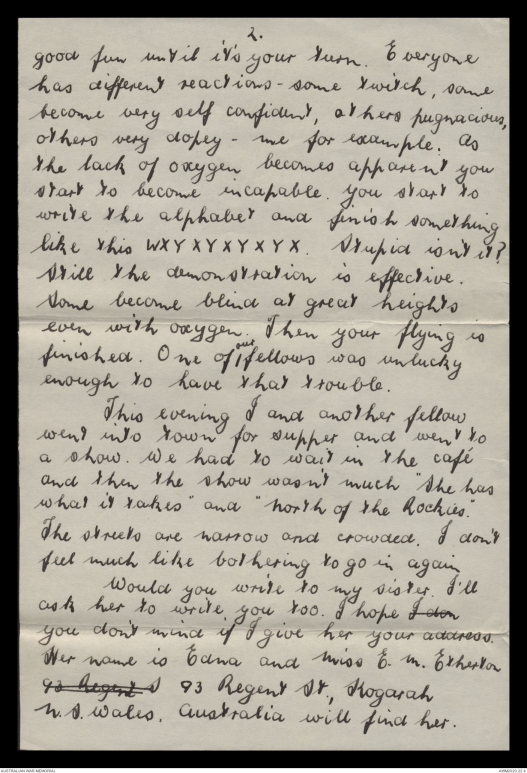 2.
good fun until it's your turn. Everyone
has different reactions - some twitch, some
become very self confident, others pugnacious,
others very dopey - me for example. As
the lack of oxygen becomes apparent you
start to become incapable. You start to
write the alphabet and finish something
like this WXYXYXYXYX. Stupid isn't it?
Still the demonstration is effective.
Some become blind at great heights
even with oxygen. Then your flying is
finished. One of our fellows was unlucky
enough to have that trouble.
This evening I and another fellow
went into town for supper and went to
a show. We had to wait in the café
and then the show wasn't much "She has
what it takes" and "north of the Rockies".
The streets are narrow and crowded. I don't
feel much like bothering to go in again
Would you write to my sister. I'll
ask her to write you too. I hope I don
you don't mind if I give her your address.
Her name is Edna and Miss E. M. Etherton
93 Regent S 93 Regent St, Kogarah
N.S. Wales. Australia will find her.
AUSTRALIAN WAR MEMORIAL